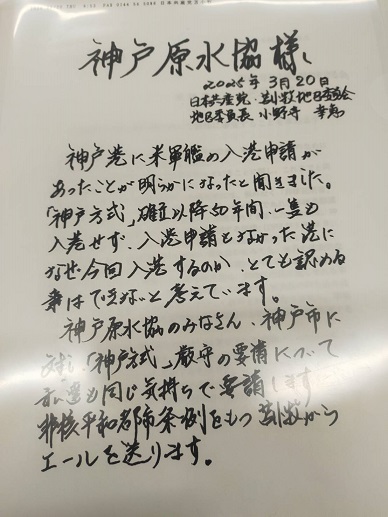 神戸原水協様
2025年3月20日
日本共産党 苫小牧地区委員会
地区委員長 小野寺 幸恵
神戸港に米軍艦の入港申請が
あったことが明らかになったと聞きました。
「神戸方式」確立以降50年間、一隻も
入港せず、入港申請もなかった港に
なぜ今回入港するのか、とても認める
事はできないと考えています。
神戸原水協のみなさん、神戸市に
対し、「神戸方式」厳守の要請について
私達も同じ気持ちで要請します
非核平和都市条例をもつ苫小牧から
エールを送ります。